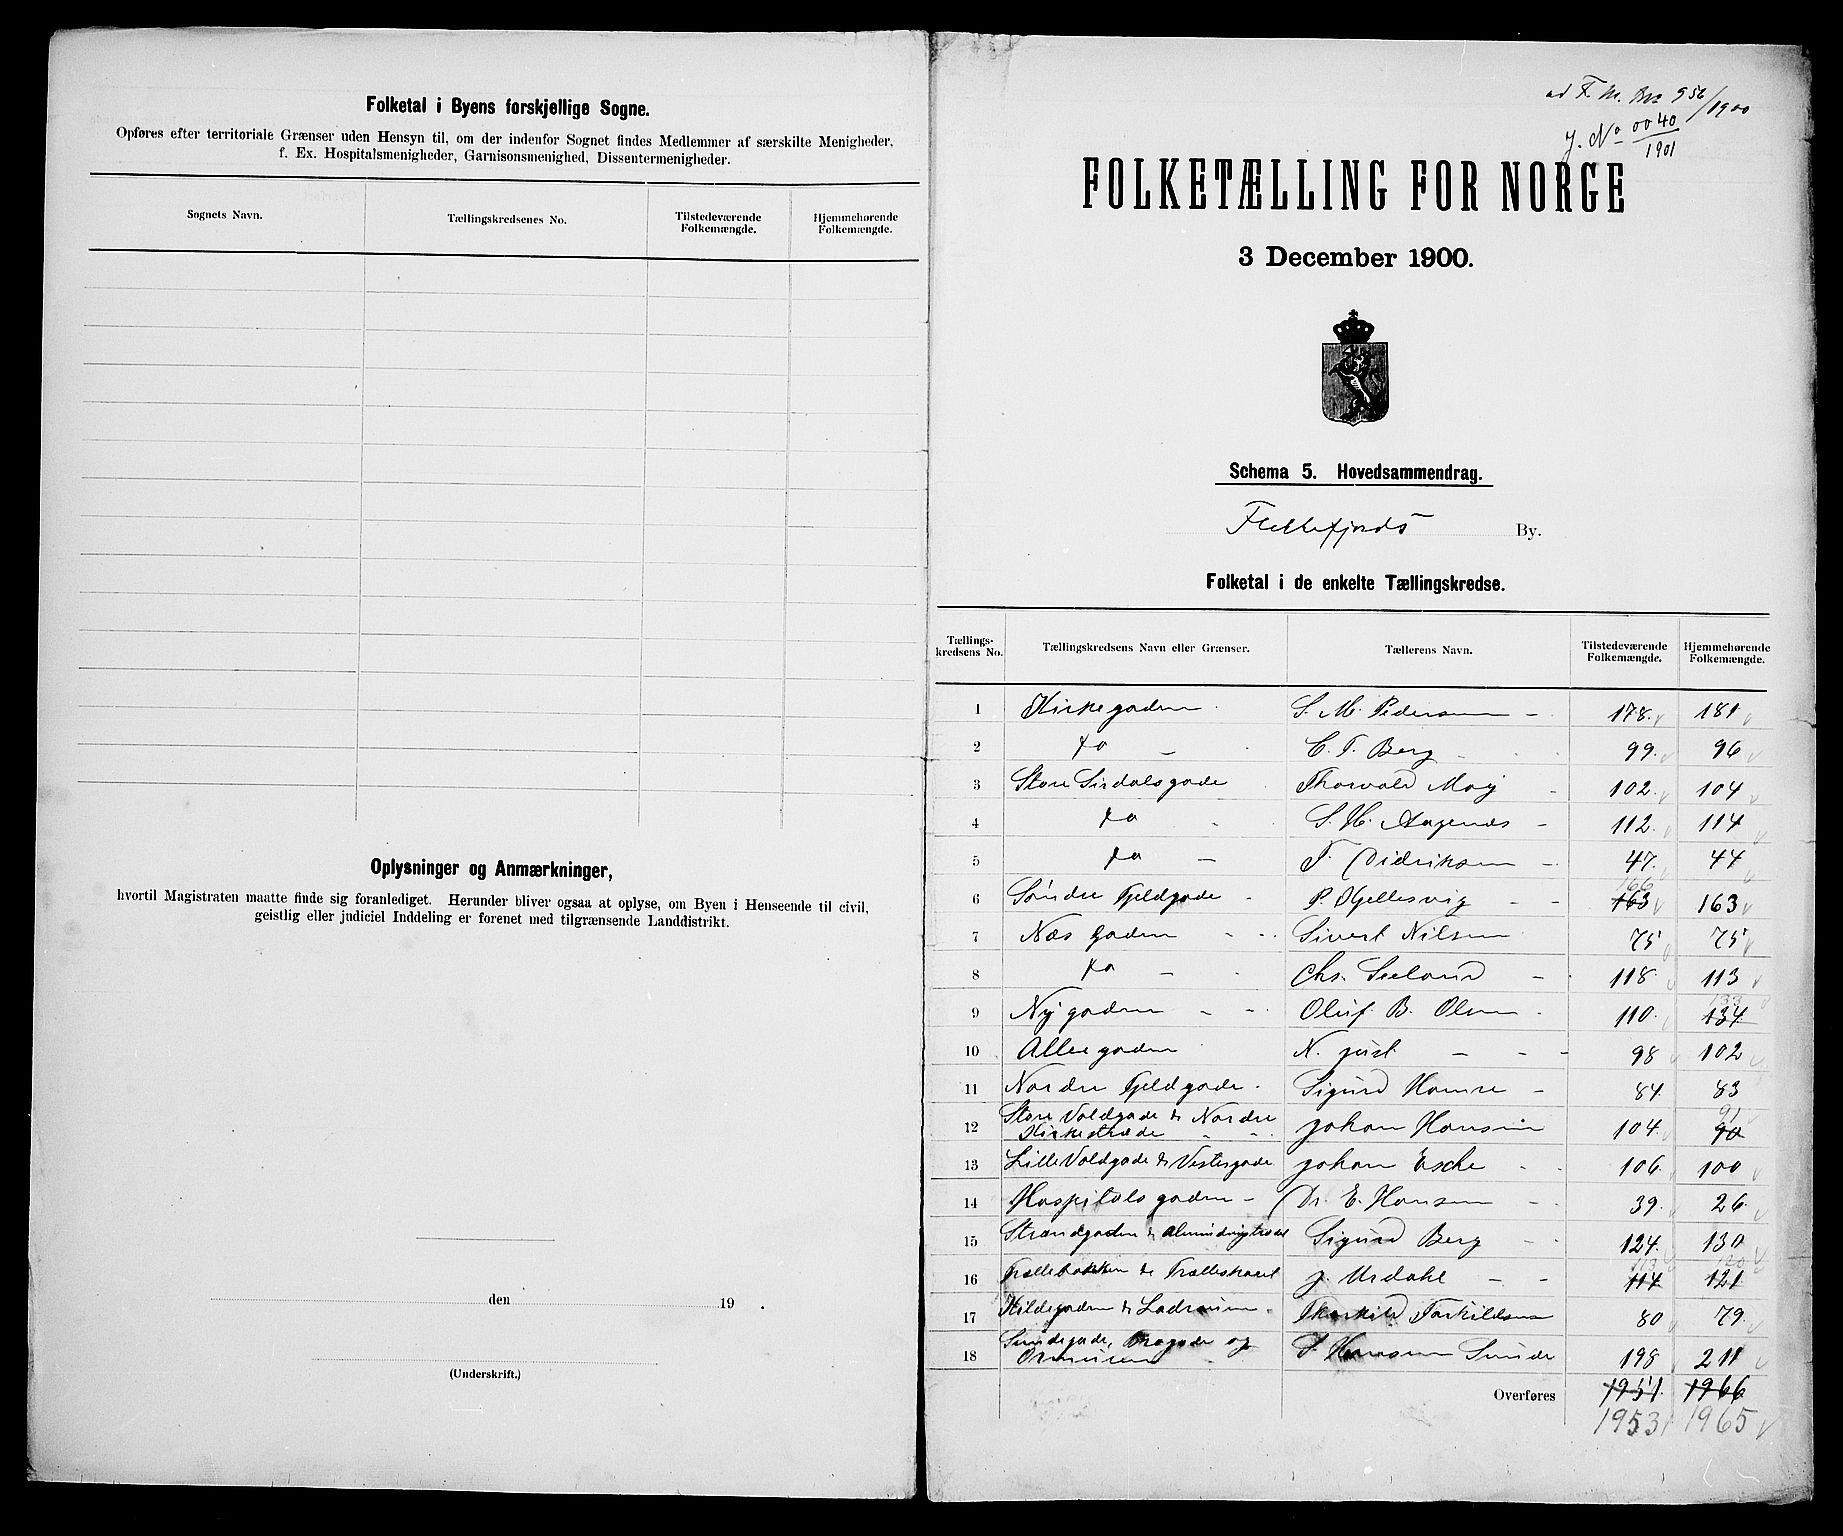 Folketal i Byens forskjellige Sogne.
Opføres efter territoriale Grænser uden Hensyn til, om der indenfor Sognet findes Medlemmer af særskilte Menigheder,
f. Ex. Hospitalsmenigheder, Garnisonsmenighed, Dissentermenigheder.
Sognets Navn. Tællingskredsenes No. Tilstedeværende Folkemængde. Hjemmehørende Folkemængde.
Oplysninger og Anmærkninger,
hvortil Magistraten maatte finde sig foranlediget. Herunder bliver ogsaa at oplyse, om Byen i Henseende til civil,
geistlig eller judiciel Inddeling er forenet med tilgrænsende Landdistrikt.
den 19 .
(Underskrift.)
ad F. M. 956/1900
J. No 0040/1901
FOLKETÆLLING FOR NORGE
3 December 1900.
Schema 5. Hovedsammendrag.
Flekkefjords By.
Folketal i de enkelte Tællingskredse.
Tællings-kredsens No. Tællingskredsens Navn eller Grænser. Tællerens Navn. Tilstedeværende Folkemængde. Hjemmehørende Folkemængde.
1 Kirkegaden S. M. Pedersen - 178. 181
2 do - C. T. Berg - 99. 96
3 Store Sirdalsgade Thorvald Moy - 102. 104
4 do - S. H. Aagenæs - 112. 114
5 do - T. Didriksen - 47. 44
166
6 Søndre Fjeldgade - P. Kjellesvig - - 163 163
7 Næs gaden - - Sivert Nilsen 75 75
8 do - - Chs. Seeland - 118. 113
133
9 Nygaden - - Oluf B. Olsen - 110. 134
10 Alleegaden N. Just - - - 98 102
11 Nordre Fjeldgade - Sigurd Hamre - 84. 83
91
12 Store Voldgade & Nordre
Kirkestræde - - Johan Hansen 104. 90
13 Lille Voldgade & Vestergade Johan Esche - 106. 100
14 Hospitalsgaden - Dr. E. Hansen - - 39. 26
15 Strandgaden & Almindingstrædet Sigurd Berg - 124. 130
113 120
16 Trællebakken & J. Urdahl - - 114 121
17 Kildegaden & Thorkild Torkildsen 80 79
18 Sundegade, og
S. Hansen Sunde 198 211
Overføres 1951. 1966
1953 1965